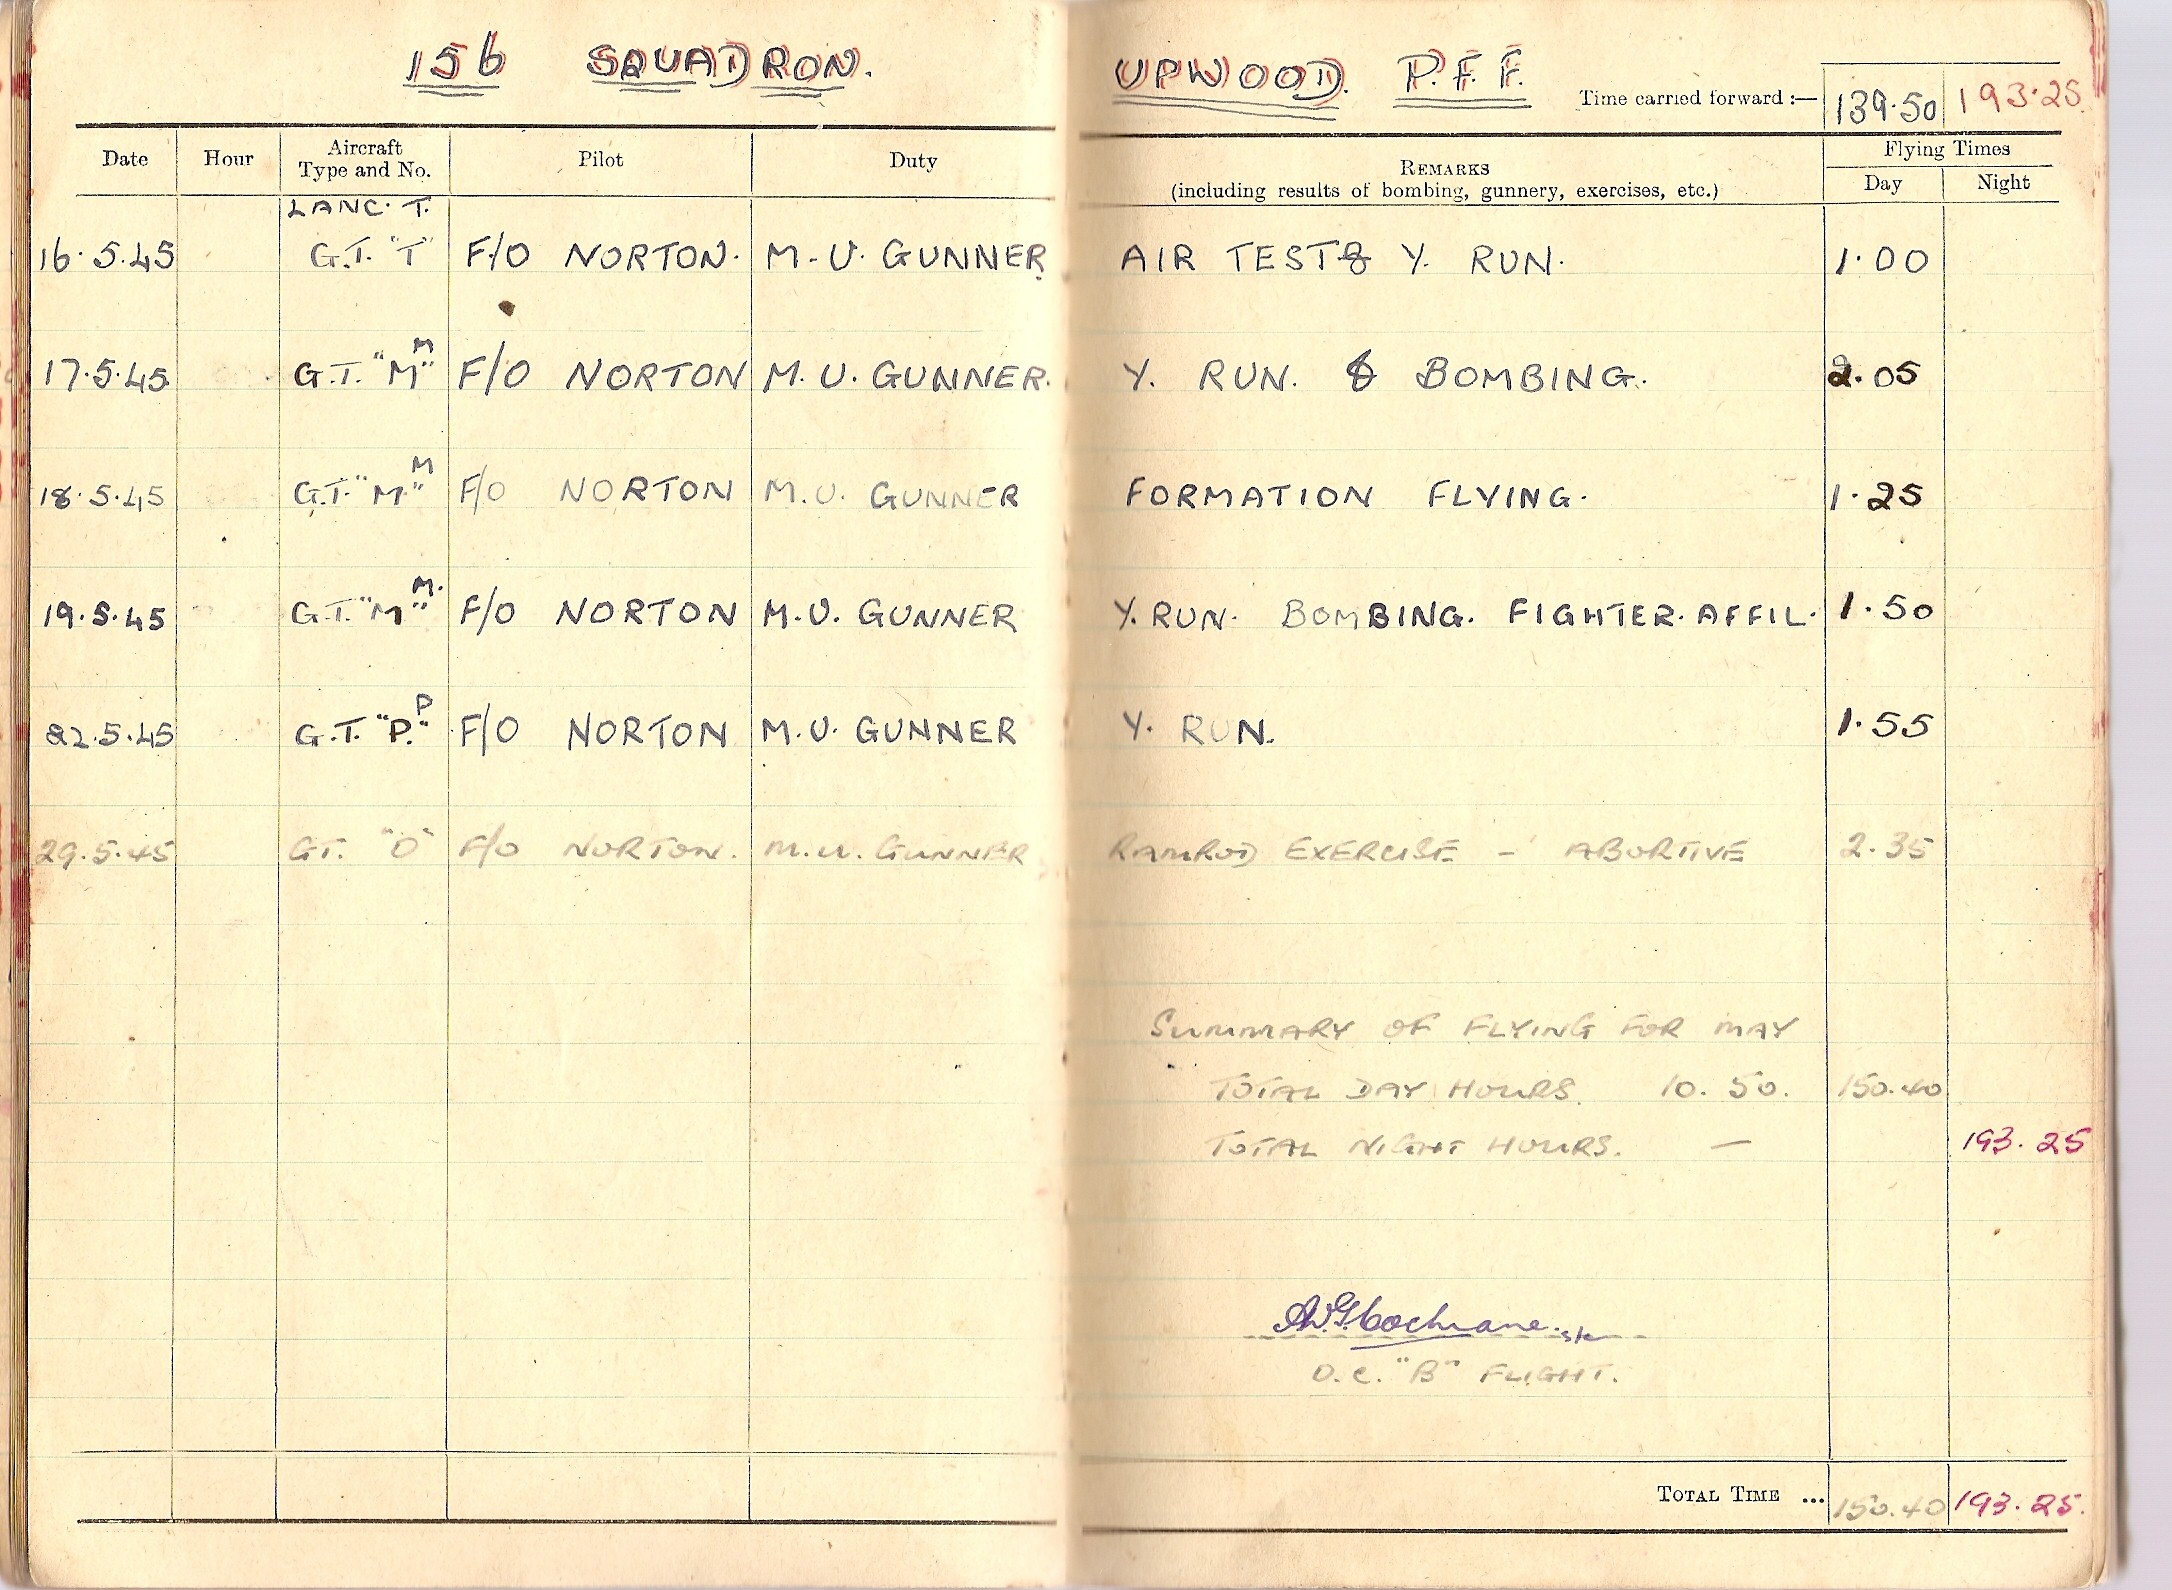 156 SQUADRON.
UPWOOD. P.F.F.
Time carried forward :— 139.50 193.25
Date Hour Aircraft Type and No. Pilot Duty
REMARKS (including results of bombing, gunnery, exercises, etc.)
Flying Times
Day Night
LANC. T.
16.5.45 G.T. "T" F/O NORTON. M.U. GUNNER. AIR TEST & Y. RUN. 1.00
M
17.5.45 G.T. "M" F/O NORTON M.U. GUNNER. Y. RUN. & BOMBING. 2.05
M
18.5.45 G.T. "M" F/O NORTON M.U. GUNNER FORMATION FLYING. 1.25
M.
19.5.45 G.T. "M" F/O NORTON M.U. GUNNER Y. RUN. BOMBING. FIGHTER. AFFIL. 1.50
P
22.5.45 G.T. "P." F/O NORTON M.U. GUNNER Y. RUN. 1.55
29.5.45 GT. "O" F/O NORTON. M.U. GUNNER RAMROD EXERCISE - ABORTIVE 2.35
SUMMARY OF FLYING FOR MAY
TOTAL DAY HOURS. 10.50. 150.40
TOTAL NIGHT HOURS. — 193.25
AWG Cochrane. S/L
O.C. "B" FLIGHT.
TOTAL TIME ... 150.40 193.25.